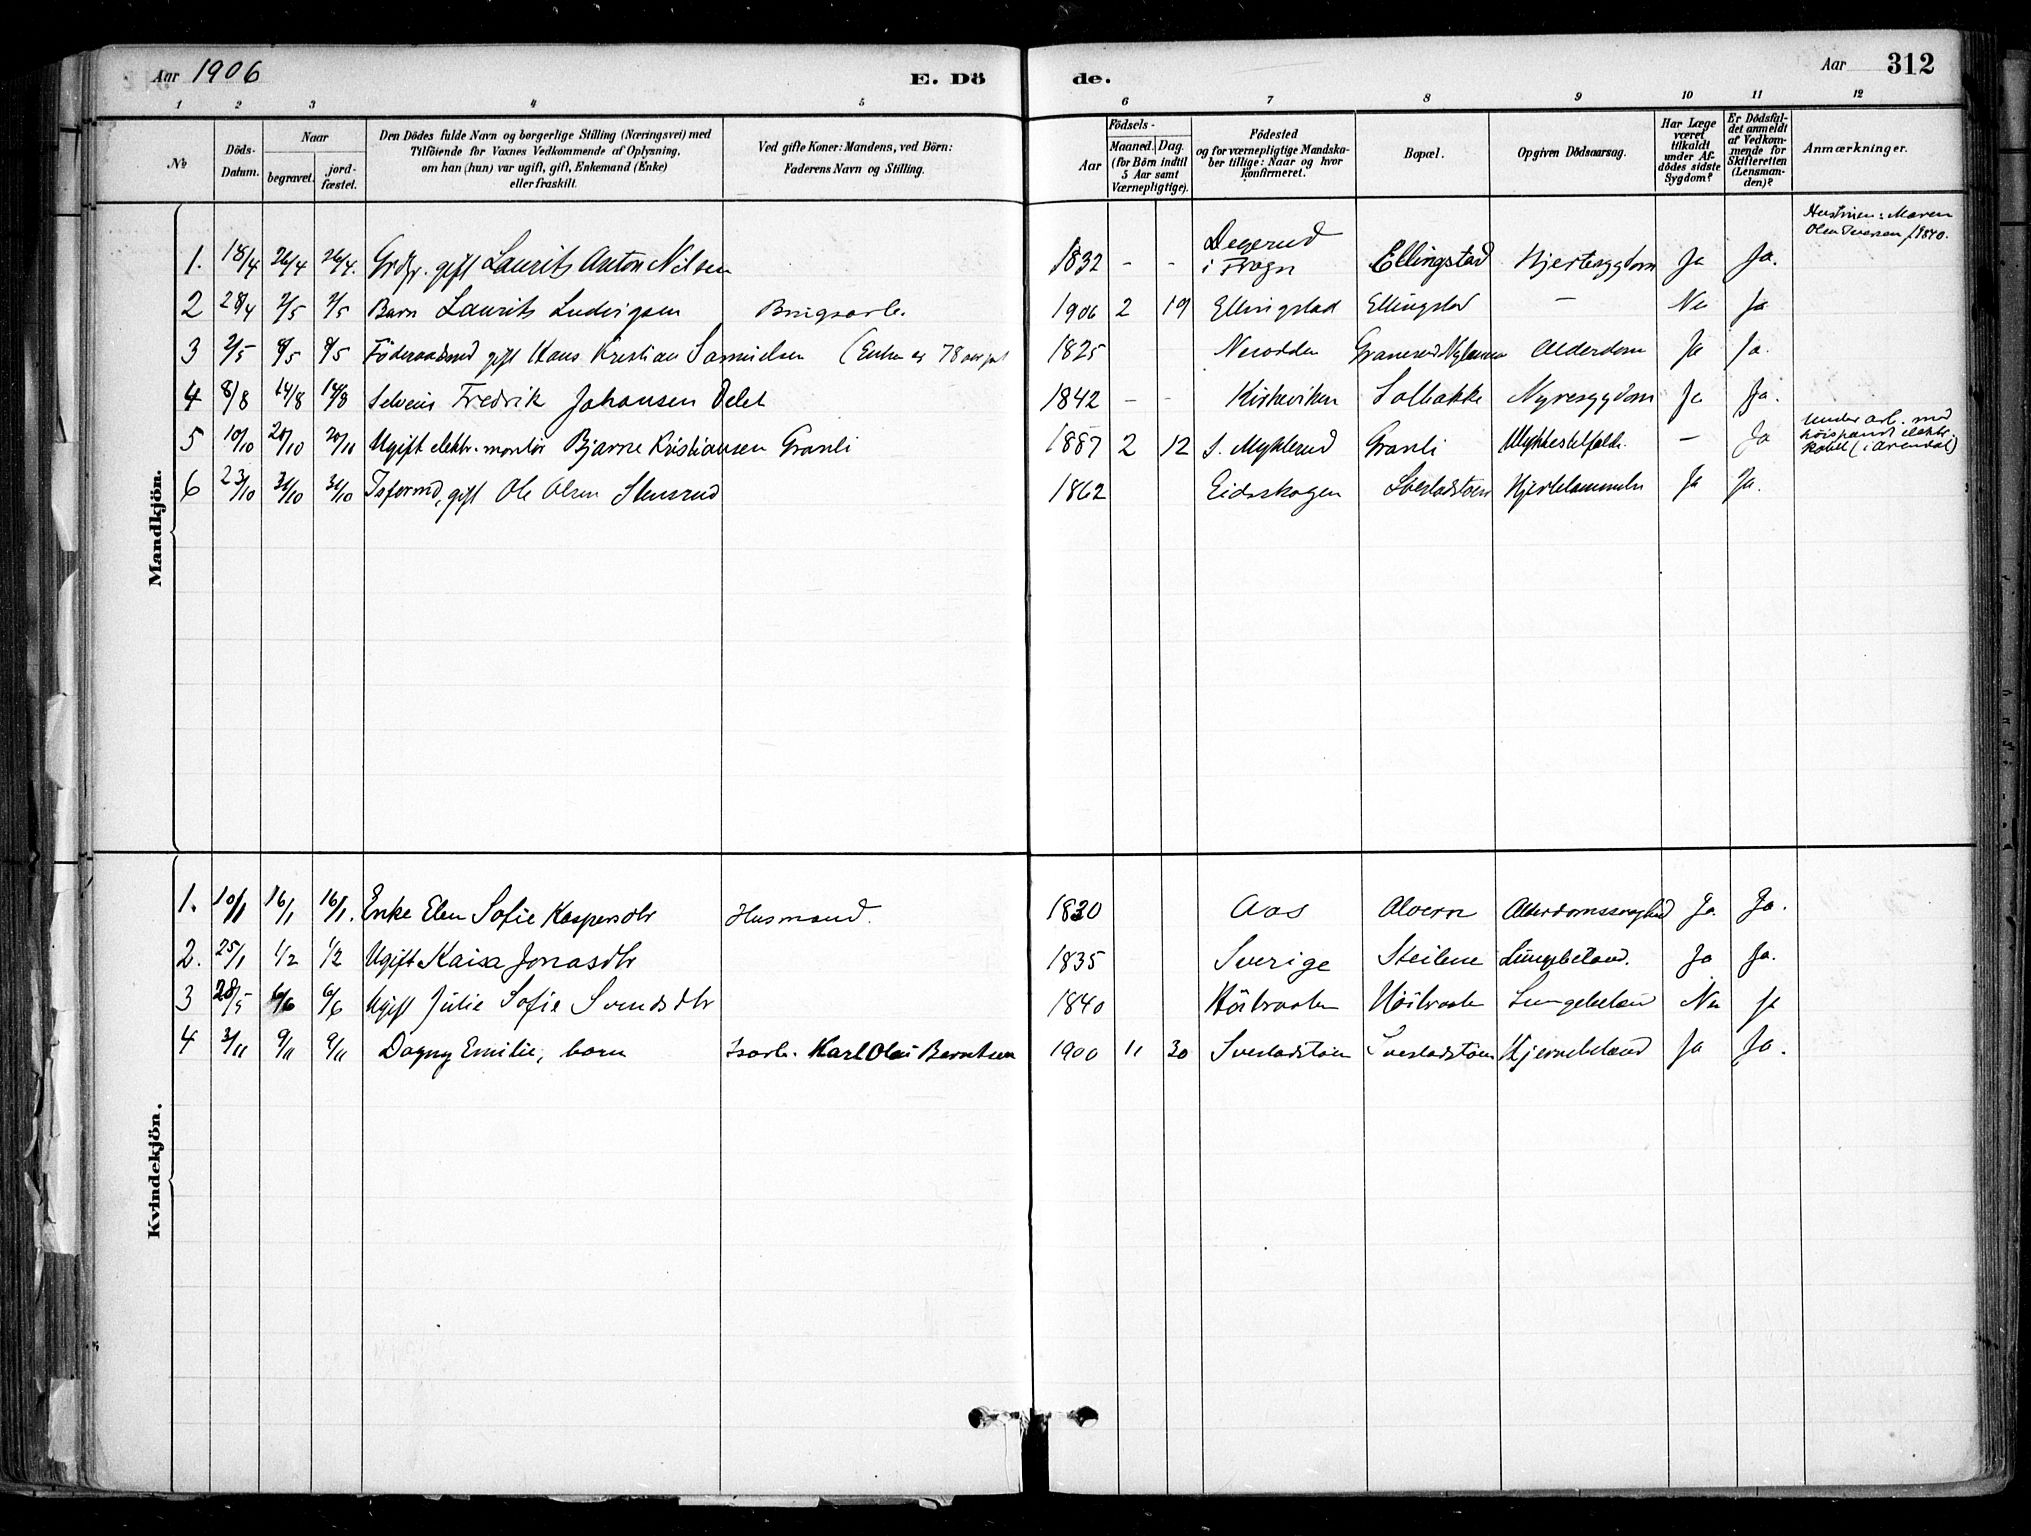 Aar 1906 E. Dö de. Aar 312
1 2 3 4 5 6 7 8 9 10 11 12
№
Döds-Datum.
Naar
begravet. jordfæstet.
Den Dödes fulde Navn og borgerlige Stilling (Næringsvei) med
Tilföiende for Voxnes Vedkommende af Oplysning,
om han (hun) var ugift, gift, Enkemand (Enke)
eller fraskilt.
Ved gifte Koner: Mandens, ved Börn:
Faderens Navn og Stilling.
Födsels-
Aar Maaned. Dag.
(for Börn indtil
5 Aar samt
Værnepligtige).
Födested
og for værnepligtige Mandska-
ber tillige: Naar og hvor
konfirmeret.
Bopæl.
Opgiven Dödsaarsag.
Har Læge
været
tilkaldt
under Af-
dödes sidste
Sygdom?
Er Dödsfal-
det anmeldt
af Vedkom-
mende for
Skifteretten
(Lensman-
den)?
Anmærkninger.
Mandkjön.
1. 18/4 26/4 26/4. Grdr. gift Laurits Anton Nilsen 1832 - - Degerud i Frogn Ellingstad Hjertesygdom Ja Ja. Hustruen: Maren Olea Iversen f. 1840.
2 28/4 2/5 2/5 Barn Laurits Ludvigsen Brugsarb. 1906 2 19 Ellingstad Ellingstad - Nei Ja
3 2/5 8/5 8/5 Föderaadsmd gift Hans Kristian Samuelsen (Enken er 78 aar gl. 1825 Nesodden Alderdom Ja Ja.
4 8/8 14/8 14/8 Selveier Fredrik Johansen Delet 1842 - - Kirkeviken Solbakke Nyresygdom Ja Ja.
5 10/10 20/10 20/10 Ugift elektr. montör Bjarne Kristiansen Granli 1887 2 12 S. Myklerud Granli Ulykkestilfælde. - Ja under arb. med höispændt elektr. kabel (i Arendal)
6 23/10 30/10 30/10 gift Ole Olsen Stensrud 1862 Eidsskogen Svestadstöen Hjertelammelse Ja Ja.
Kvindekjön.
1. 10/1 16/1 16/1. Enke Elen Sofie Kaspersdtr Husmand. 1830 Aas Alvern Alderdomssvaghed Ja. Ja.
2. 25/1 1/2 1/2 Ugift Kaisa Jonasdtr 1835 Sverige Steilene Lungebetænd. Ja Ja.
3 28/5 6/6 6/6 Ugift Julie Sofie Svendsdtr 1840 Höibraaten Höibraaten Lungebetænd Nei Ja
4 3/11 9/11 9/11 Dagny Emilie, barn Isarb. Karl Olai Berntsen 1900 11 30 Svestadstöen Svestadstöen Hjernebetænd Ja Ja.